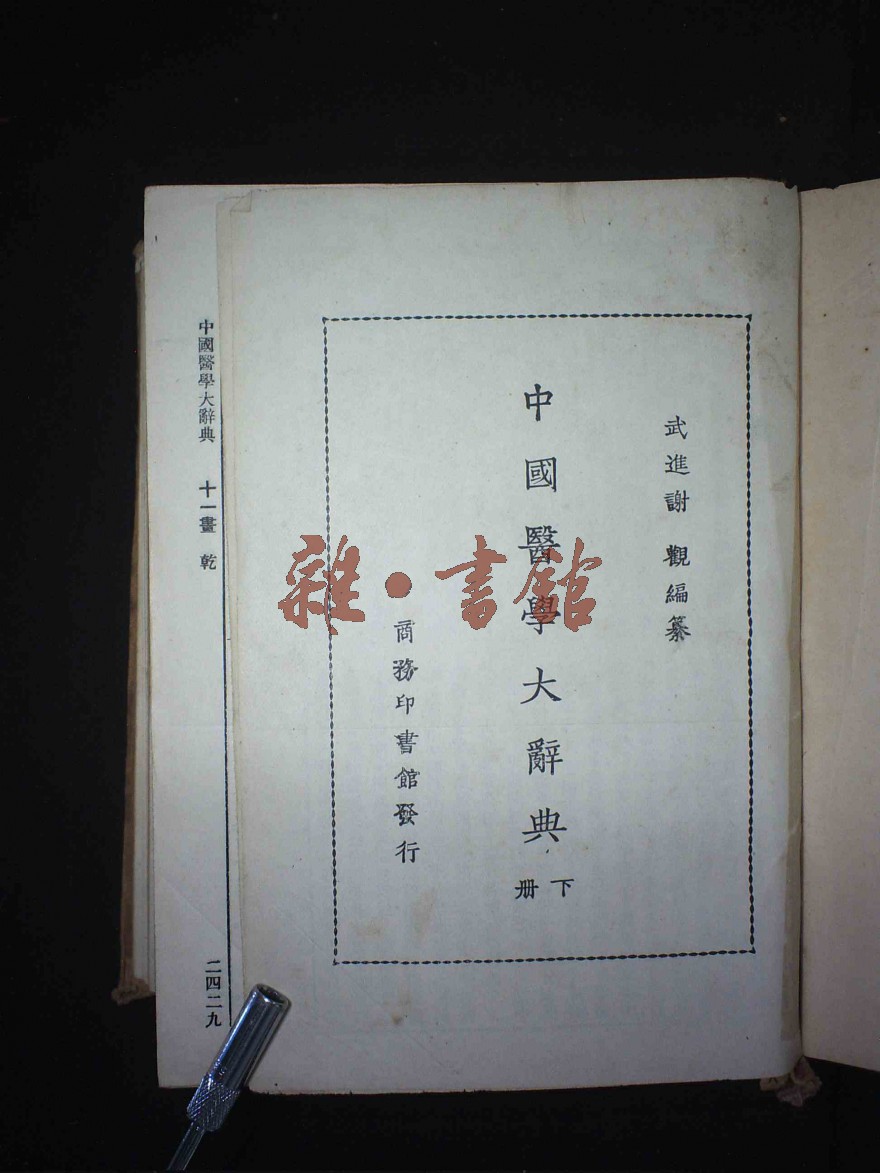 武進謝觀編纂
中國醫學大辭典
下册
商務印書館發行
中國醫學大辭典 十一畫 乾
二四二九
雜·書館